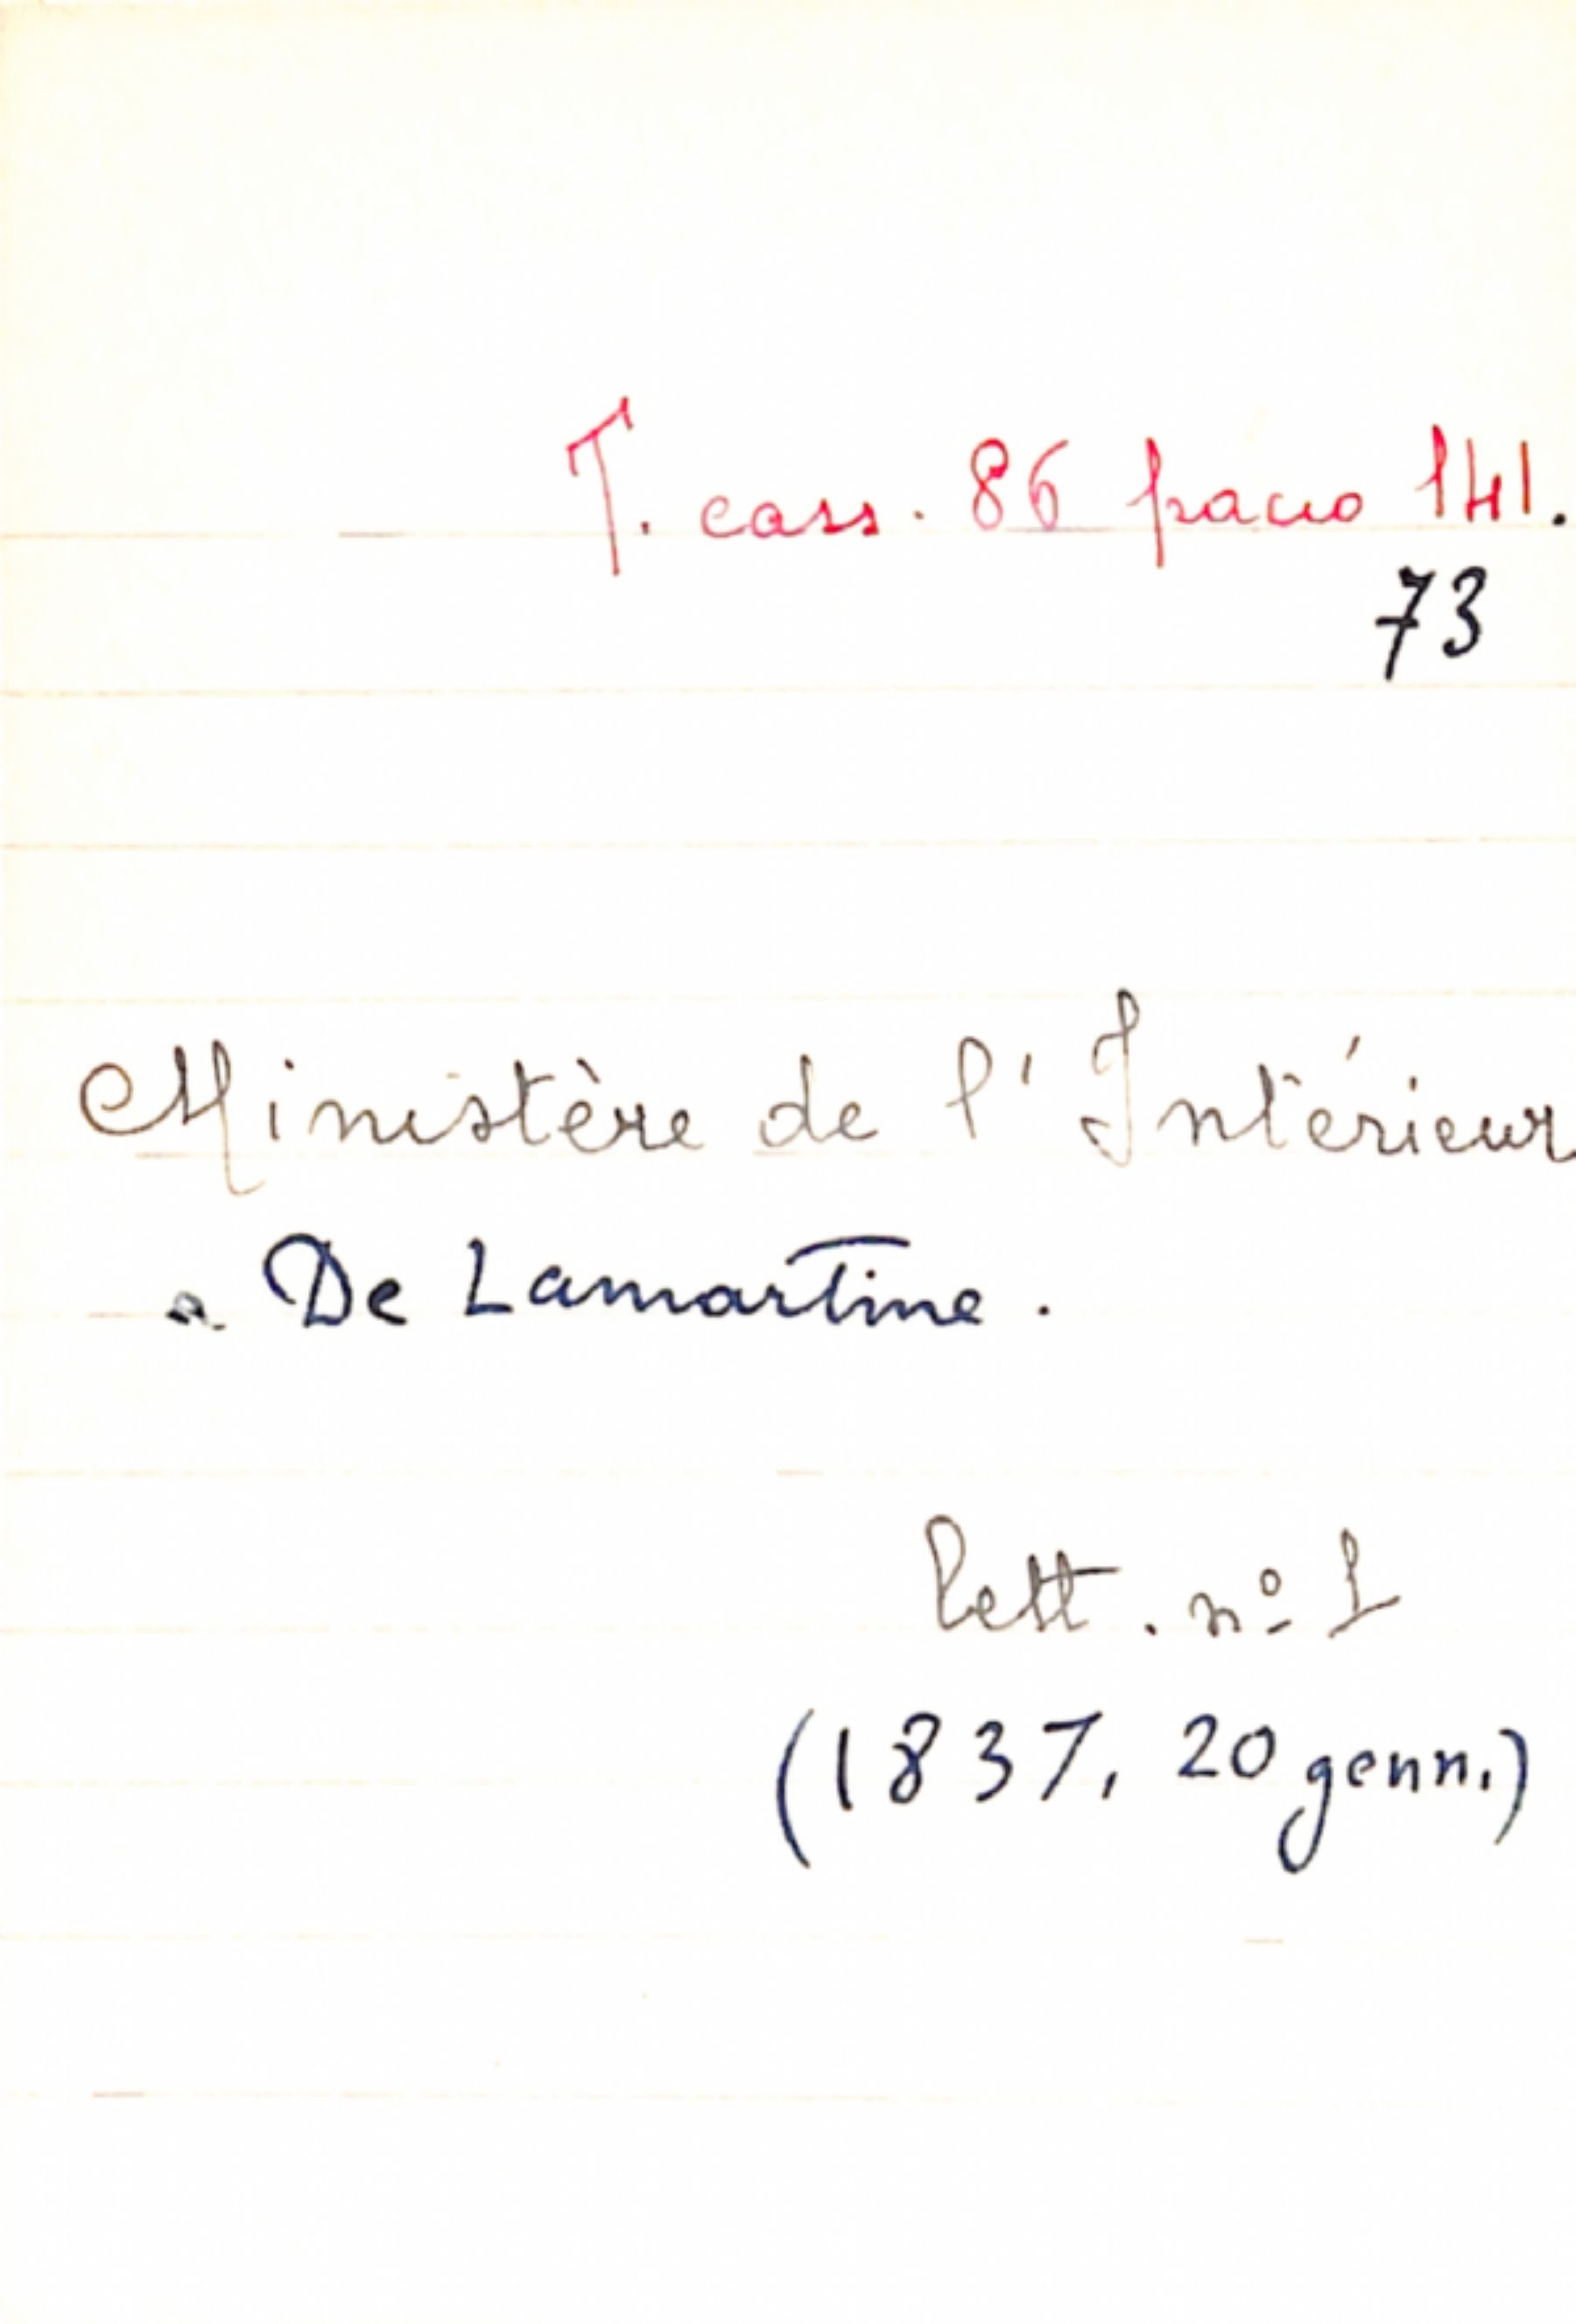 T. cass. 86 pacco 141.
73
Ministère de l'Intérieur
a De Lamartine.
lett. nº 1
(1837, 20 genn.)